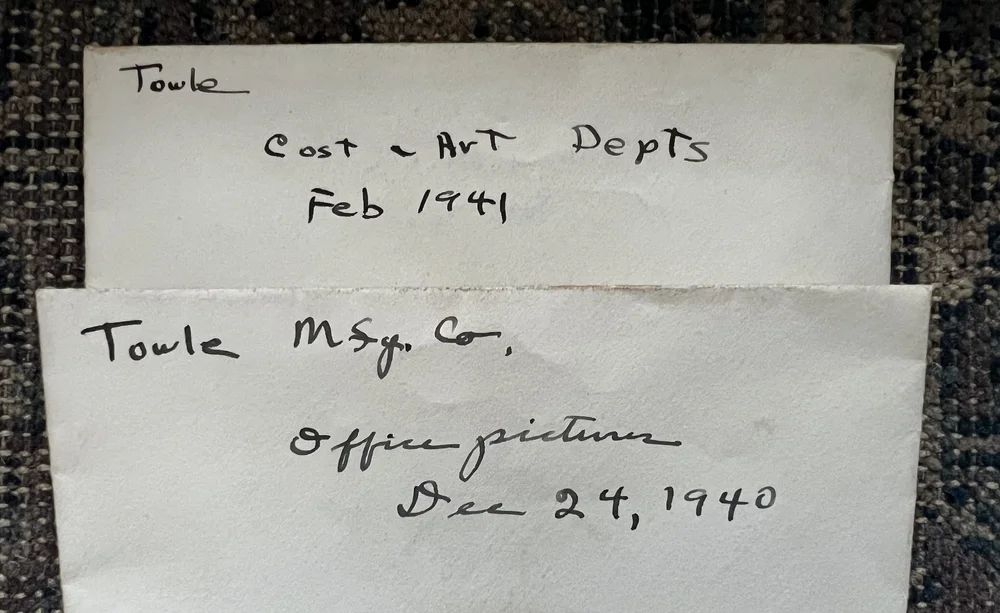 Towle
Cost & Art Depts
Feb 1941
Towle Mfg. Co.
Office pictures
Dec 24, 1940